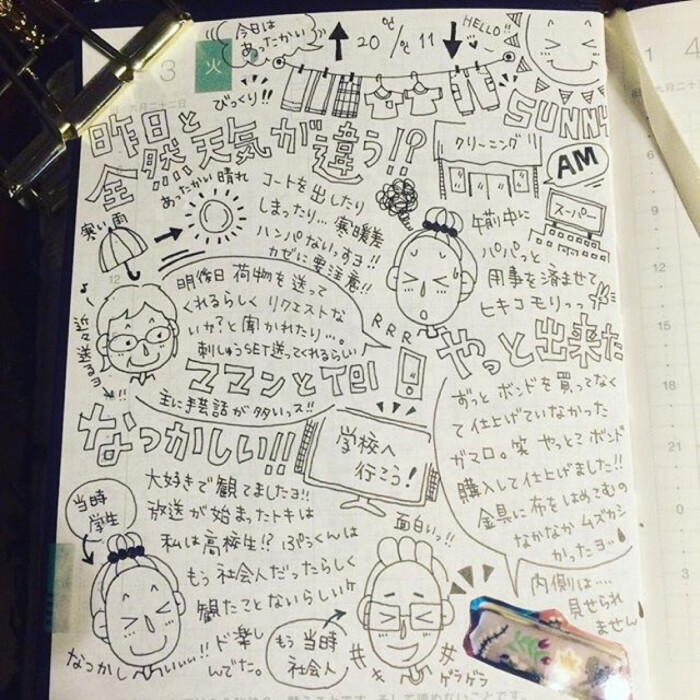 3 火
九月二十二日
今日は
あったかい
20℃/℃11
HELLO!!
SUNNY
びっくり!!
昨日と
全然天気が違う!?
寒い雨
あったかい晴れ
コートを出したり
しまったり…寒暖差
ハンパないっすヨ!!
カゼに要注意!!
クリーニング
AM
スーパー
午前中に
パパっと
用事を済ませて
ヒキコモりっっ
明後日 荷物を送って
くれるらしく リクエストな
いか?と聞かれたり…。
刺しゅうSET送ってくれるらしい
近々送るヨ
!!
RRR
ママンとTel
主に手芸話が多いっス!!
やっと出来た
ずっと ボンドを買ってなく
て仕上げていなかった
ガマロ。笑 やっとこボンド
購入して仕上げました!!
金具に布をはめこむの
なかなか ムズカシ
かったヨッ
内側は…
見せられ
ません
なつかしい!!
学校へ
行こう!
大好きで観てましたヨ!!
放送が始まったトキは
私は高校生!? ぷぅくんは
もう社会人だったらしく
観たことないらしいケ
ド楽し
んでた。
当時
学生
なつかし
いぃぃ!!
面白いっ!!
もう当時
社会人
ゲラゲラ
1 4
6
9
12
12
15
18
21
0
3